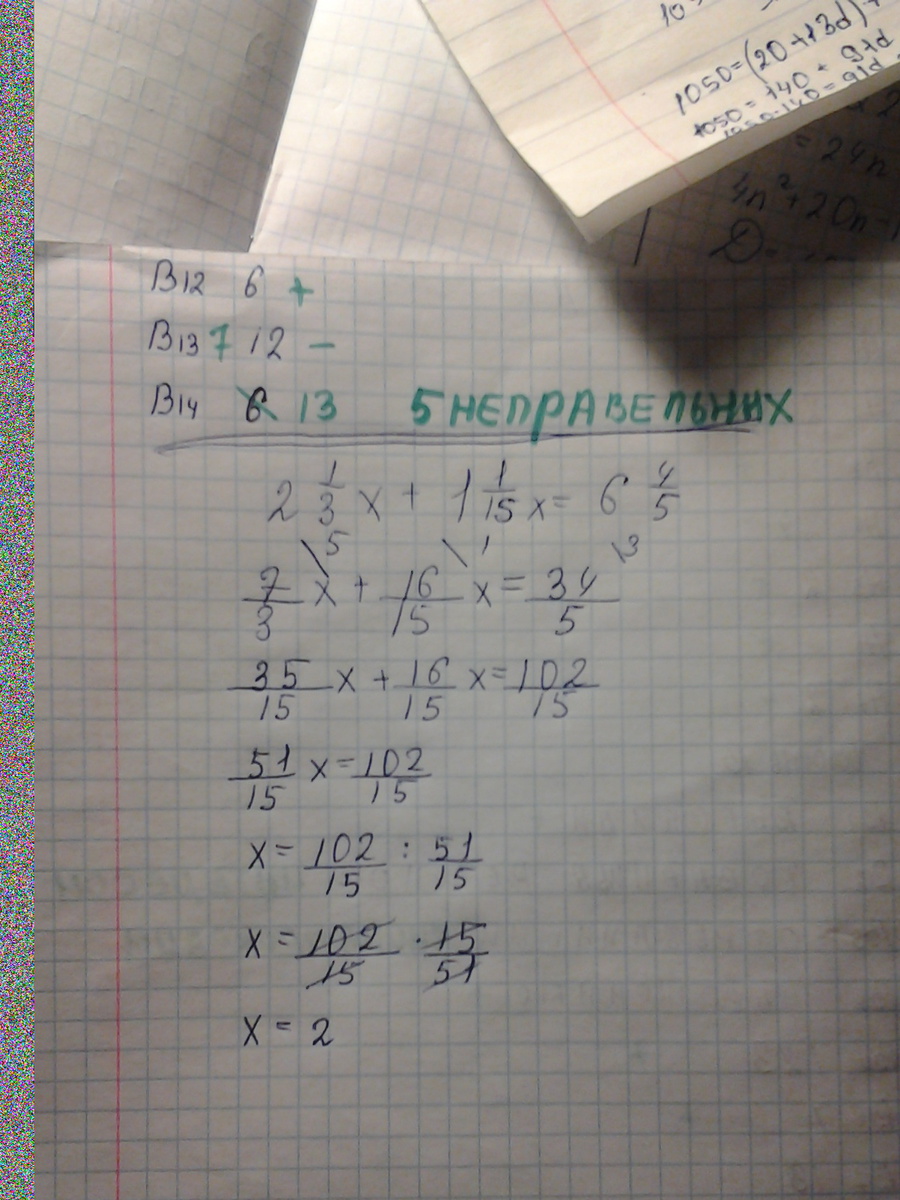 1050=(20+13d)
1050=140+91d
=24n
4n²+20n
В12 6 +
В13 7 12 −
В14 6 13 5 НЕПРАВЕЛЬНЫХ
2 1/3 x + 1 1/15 x = 6 4/5
7/3 \5 x + 16/15 \1 x = 34/5 \3
35/15 x + 16/15 x = 102/15
51/15 x = 102/15
x = 102/15 : 51/15
x = 102/15 · 15/51
x = 2